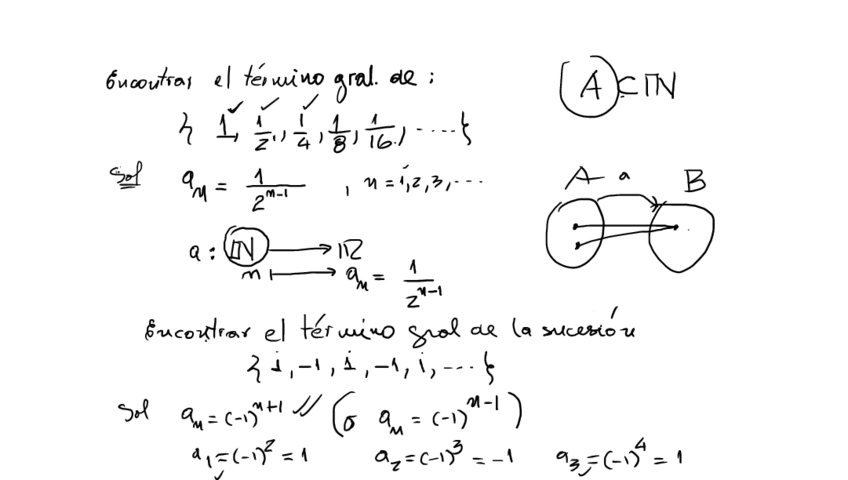 Encontrar el término gral. de :
{ 1, 1/2, 1/4, 1/8, 1/16, ....}
Sol a_n = 1/2^(n-1) , n = 1,2,3,...
a : ℕ → ℝ
n ↦ a_n = 1/2^(n-1)
A ⊂ ℕ
A a B
Encontrar el término gral de la sucesión
{ 1, -1, 1, -1, 1, ....}
Sol a_n = (-1)^(n+1) // (o a_n = (-1)^(n-1))
a_1 = (-1)^2 = 1 a_2 = (-1)^3 = -1 a_3 = (-1)^4 = 1